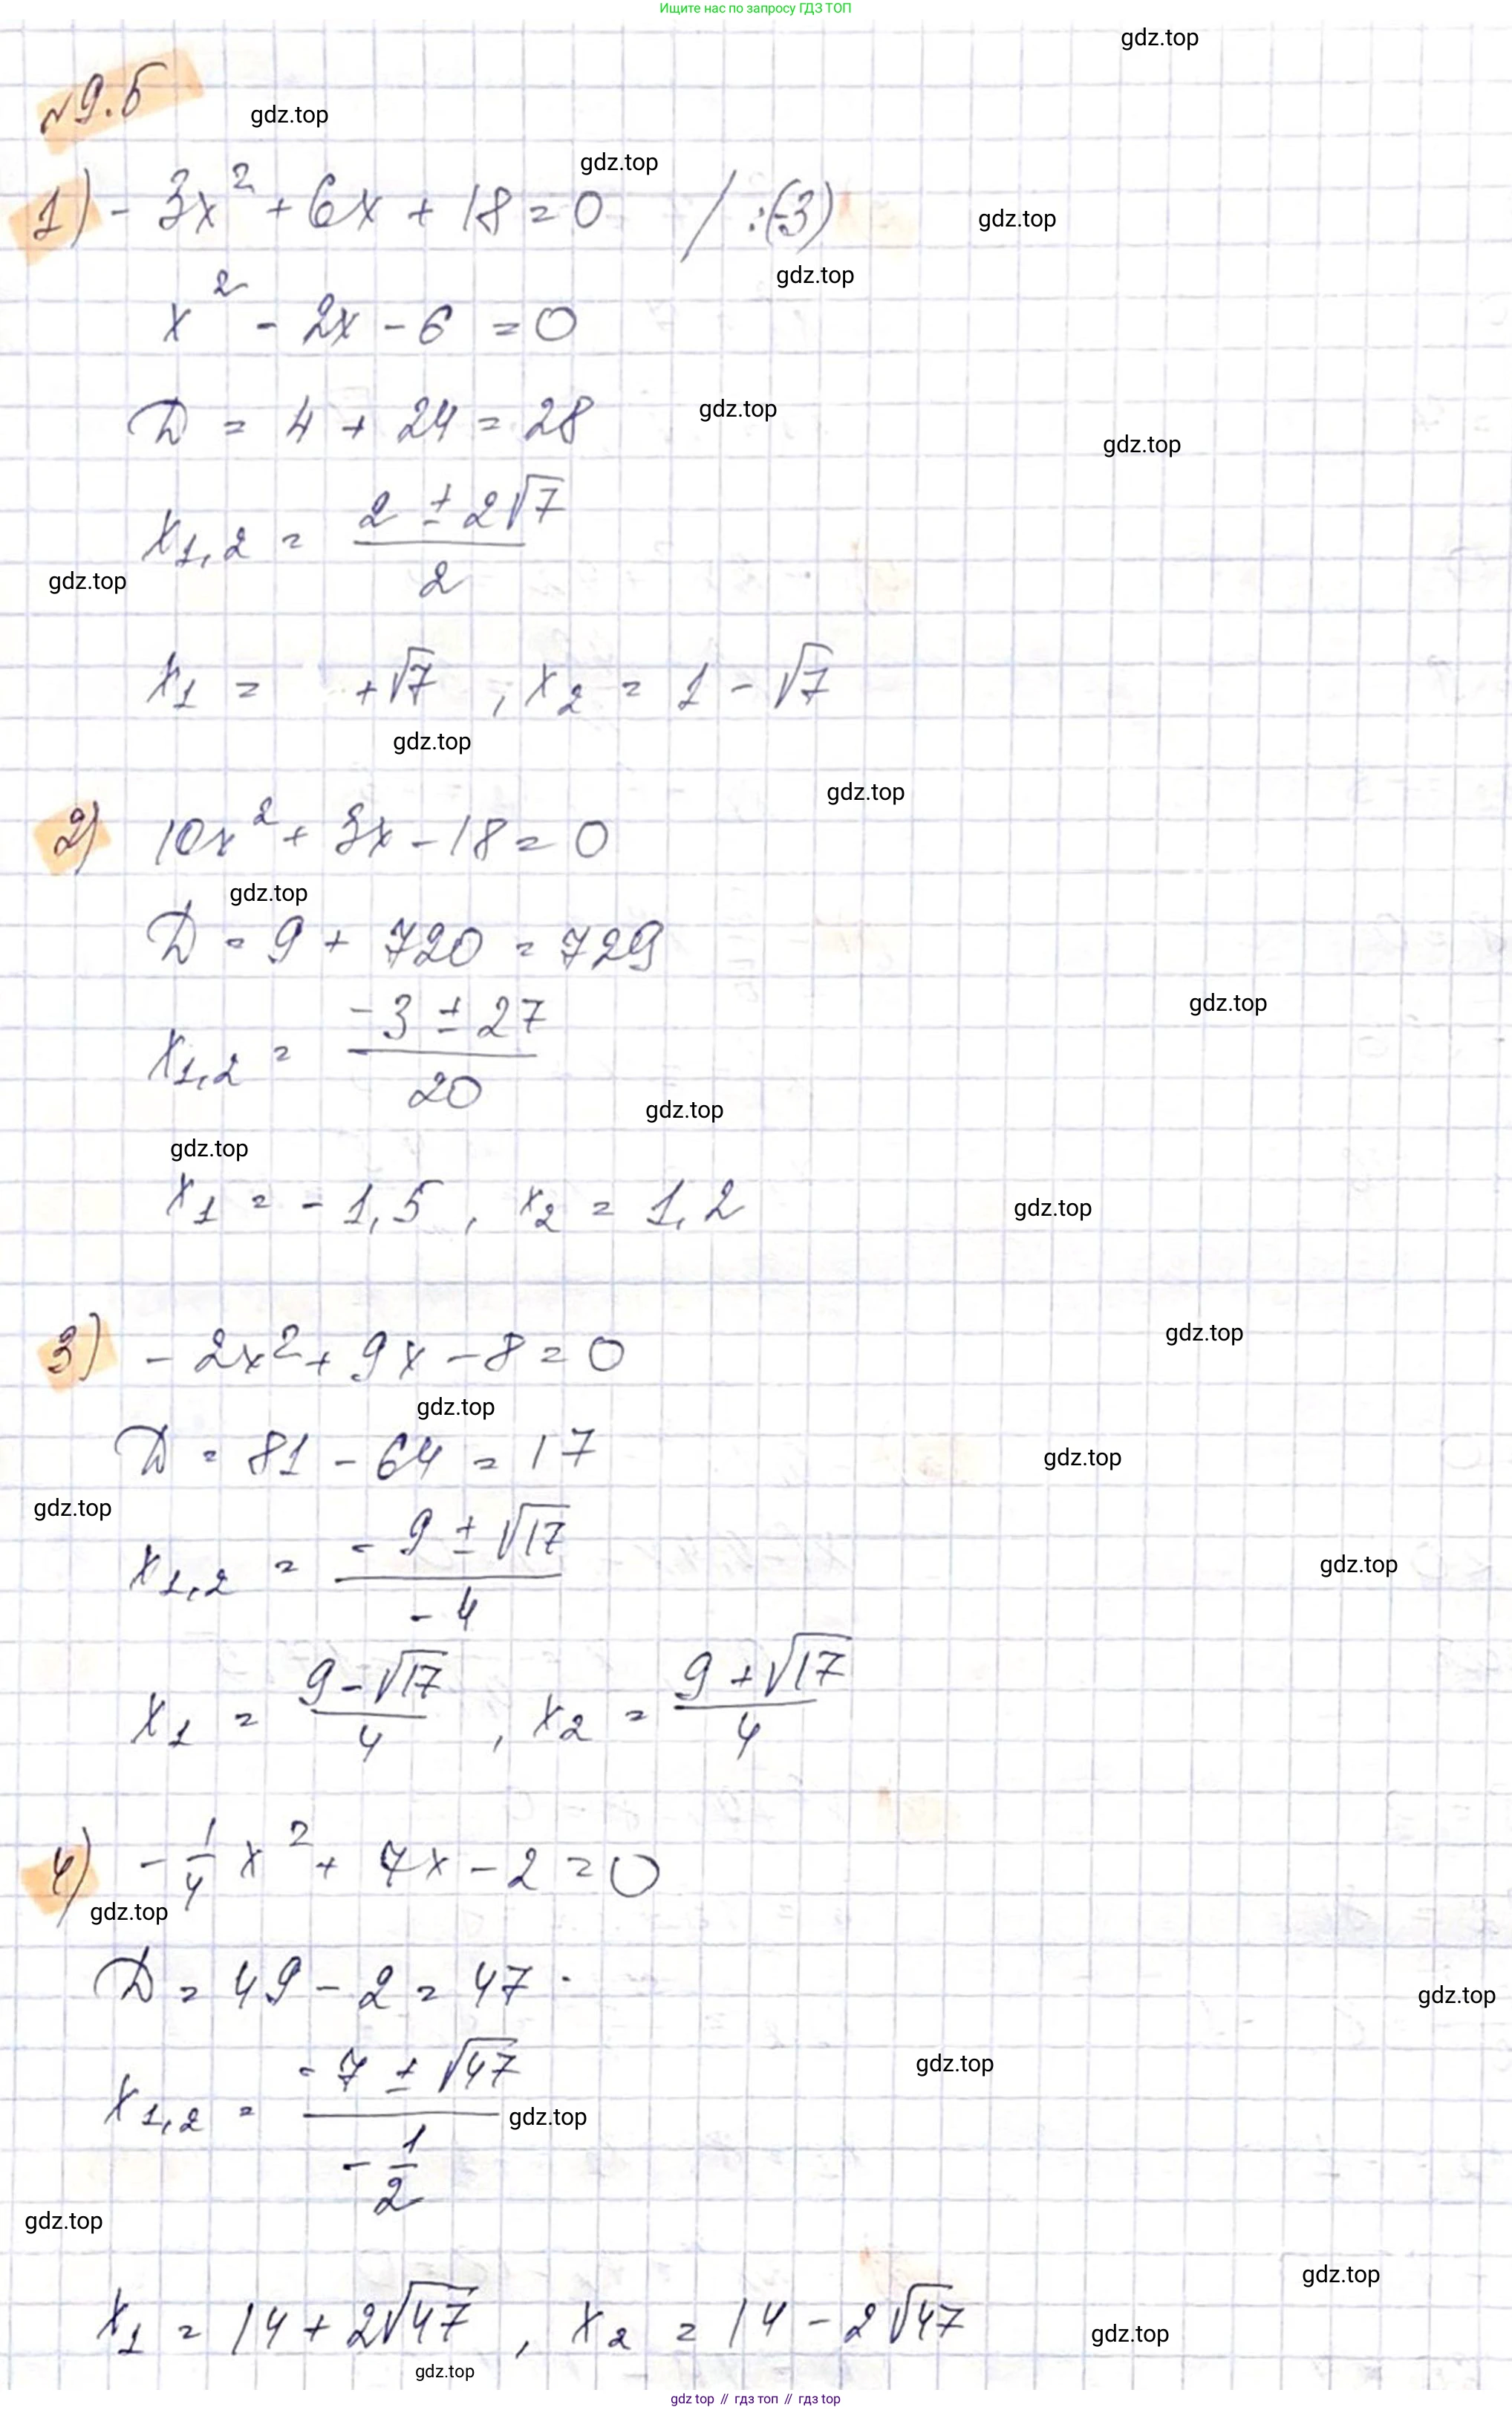 Ищите нас по запросу ГДЗ ТОП
gdz.top
№9.5
gdz.top
gdz.top
1) - 3x² + 6x + 18 = 0 / :(-3)
gdz.top
gdz.top
x² - 2x - 6 = 0
gdz.top
D = 4 + 24 = 28
gdz.top
x₁,₂ = (2 ± 2√7)/2
gdz.top
x₁ = + √7 , x₂ = 1 - √7
gdz.top
gdz.top
2) 10x² + 3x - 18 = 0
gdz.top
D = 9 + 720 = 729
gdz.top
x₁,₂ = (-3 ± 27)/20
gdz.top
gdz.top
x₁ = - 1,5 , x₂ = 1,2
gdz.top
gdz.top
3) - 2x² + 9x - 8 = 0
gdz.top
D = 81 - 64 = 17
gdz.top
gdz.top
x₁,₂ = (-9 ± √17)/-4
gdz.top
x₁ = (9 - √17)/4 , x₂ = (9 + √17)/4
4) - 1/4 x² + 7x - 2 = 0
gdz.top
D = 49 - 2 = 47
gdz.top
gdz.top
x₁,₂ = (-7 ± √47)/(-1/2)
gdz.top
gdz.top
gdz.top
x₁ = 14 + 2√47 , x₂ = 14 - 2√47
gdz.top
gdz.top
gdz top // гдз топ // гдз top